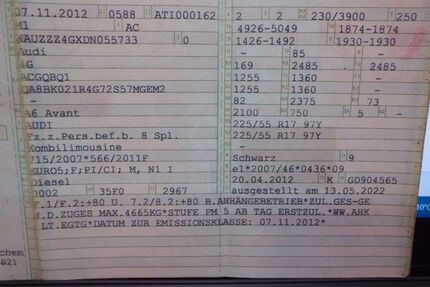 07.11.2012 0588 ATI000162 2 2 230/3900 250
M1 AC 4926-5049 1874-1874
WAUZZZ4GXDN055733 0 1426-1492 1930-1930
Audi - 85 -
4G 169 2485 2485
ACGQBQ1 1255 1360 -
QA8BK021R4G72S57MGEM2 1255 1360 -
- 82 2375 73
A6 Avant 2100 750 5 -
AUDI 225/55 R17 97Y
Fz.z.Pers.bef.b. 8 Spl. 225/55 R17 97Y
Kombilimousine -
715/2007*566/2011F Schwarz 9
EURO5;F;PI/CI; M, N1 I e1*2007/46*0436*09
Diesel 20.04.2012 K GD904565
0002 35F0 2967 ausgestellt am 13.05.2022
F.1/F.2:+80 U. 7.2/8.2:+80 B.ANHÄNGEBETRIEB*ZUL.GES-GE
W.D.ZUGES MAX.4665KG*STUFE PM 5 AB TAG ERSTZUL.*WW.AHK
LT.EGTG*DATUM ZUR EMISSIONSKLASSE: 07.11.2012*